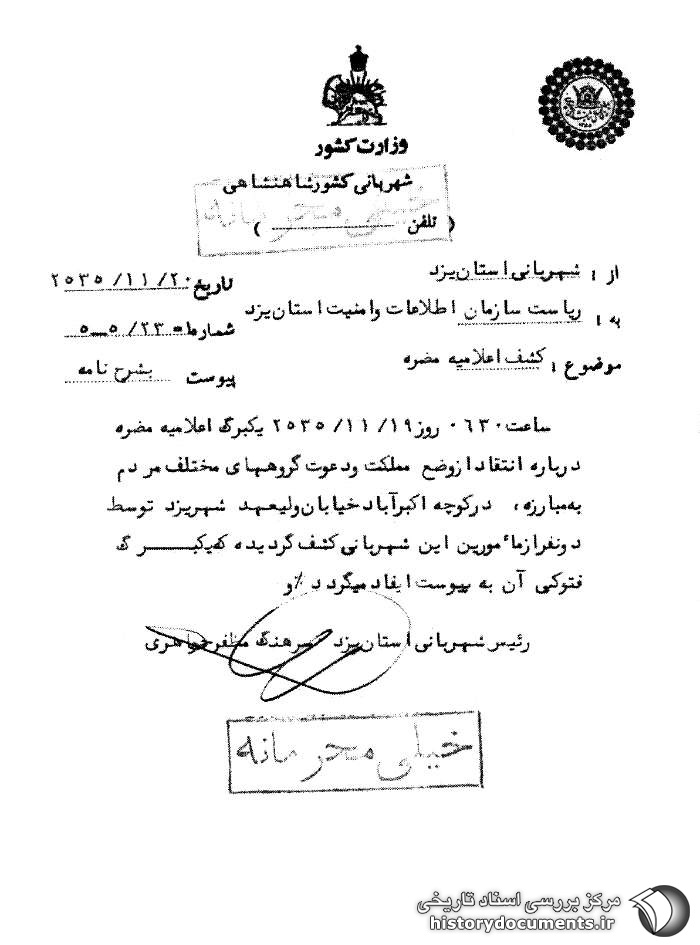 وزارت کشور
شهربانی کشور شاهنشاهی
خیلی محرمانه
( تلفن )
از : شهربانی استان یزد
به : ریاست سازمان اطلاعات وامنیت استان یزد
موضوع : کشف اعلامیه مضره
تاریخ ۲۰ /۱۱/ ۲۵۳۵
شماره ۲۳/ ۵ــ۵
پیوست بشرح نامه
ساعت ۰۶۳۰ روز ۱۹/ ۱۱/ ۲۵۳۵ یکبرگ اعلامیه مضره
درباره انتقاد از وضع مملکت ودعوت گروههای مختلف مردم
به مبارزه، درکوچه اکبرآباد خیابان ولیعهد شهر یزد توسط
دونفراز مأمورین این شهربانی کشف گردیده که یکبرگ
فتوکپی آن به پیوست ایفاد میگردد ٪و
رئیس شهربانی استان یزد سرهنگ مظفر جواهری
خیلی محرمانه
مرکز بررسی اسناد تاریخی
historydocuments.ir